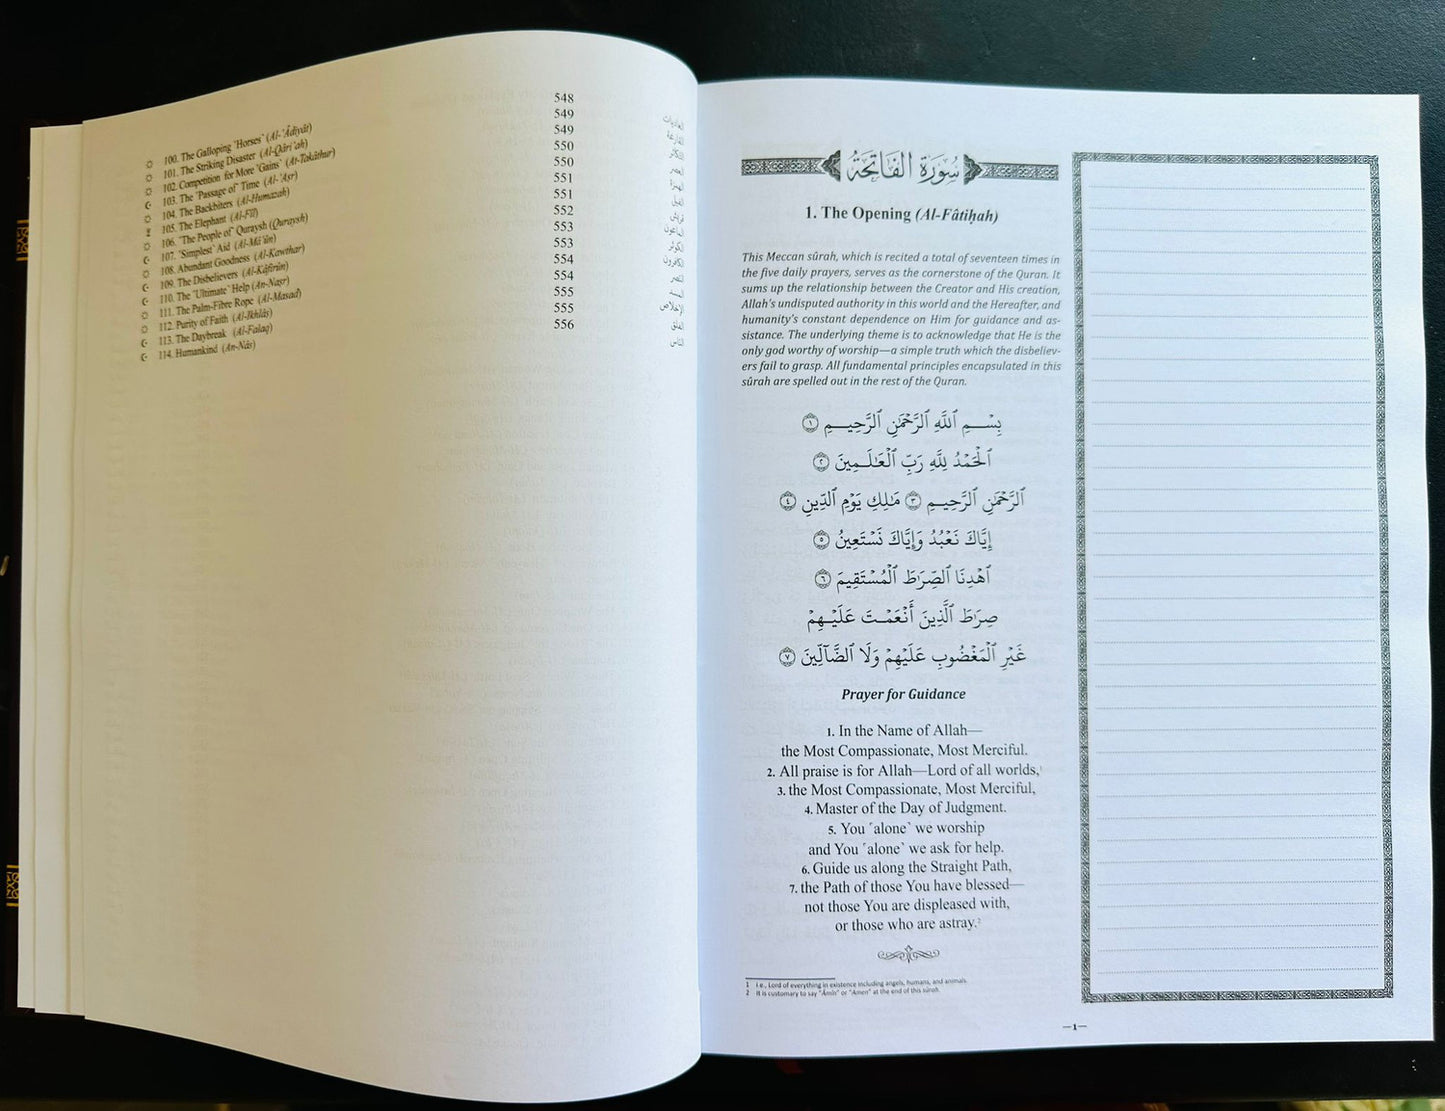 100. The Galloping ˹Horses˺ (Al-'Âdiyât) 548 العاديات
101. The Striking Disaster (Al-Qâri'ah) 549 القارعة
102. Competition for More ˹Gains˺ (At-Takâthur) 549 التكاثر
103. The ˹Passage of˺ Time (Al-'Aṣr) 550 العصر
104. The Backbiters (Al-Humazah) 550 الهمزة
105. The Elephant (Al-Fîl) 551 الفيل
106. ˹The People of˺ Quraysh (Quraysh) 551 قريش
107. ˹Simplest˺ Aid (Al-Mâ'ûn) 552 الماعون
108. Abundant Goodness (Al-Kawthar) 553 الكوثر
109. The Disbelievers (Al-Kâfirûn) 553 الكافرون
110. The ˹Ultimate˺ Help (An-Naṣr) 554 النصر
111. The Palm-Fibre Rope (Al-Masad) 554 المسد
112. Purity of Faith (Al-Ikhlâṣ) 555 الإخلاص
113. The Daybreak (Al-Falaq) 555 الفلق
114. Humankind (An-Nâs) 556 الناس
سُورَةُ الْفَاتِحَةُ
1. The Opening (Al-Fâtiḥah)
This Meccan sûrah, which is recited a total of seventeen times in
the five daily prayers, serves as the cornerstone of the Quran. It
sums up the relationship between the Creator and His creation,
Allah's undisputed authority in this world and the Hereafter, and
humanity's constant dependence on Him for guidance and as-
sistance. The underlying theme is to acknowledge that He is the
only god worthy of worship—a simple truth which the disbeliev-
ers fail to grasp. All fundamental principles encapsulated in this
sûrah are spelled out in the rest of the Quran.
بِسْمِ ٱللَّهِ ٱلرَّحْمَٰنِ ٱلرَّحِيمِ ١
ٱلْحَمْدُ لِلَّهِ رَبِّ ٱلْعَٰلَمِينَ ٢
ٱلرَّحْمَٰنِ ٱلرَّحِيمِ ٣ مَٰلِكِ يَوْمِ ٱلدِّينِ ٤
إِيَّاكَ نَعْبُدُ وَإِيَّاكَ نَسْتَعِينُ ٥
ٱهْدِنَا ٱلصِّرَٰطَ ٱلْمُسْتَقِيمَ ٦
صِرَٰطَ ٱلَّذِينَ أَنْعَمْتَ عَلَيْهِمْ
غَيْرِ ٱلْمَغْضُوبِ عَلَيْهِمْ وَلَا ٱلضَّآلِّينَ ٧
Prayer for Guidance
1. In the Name of Allah—
the Most Compassionate, Most Merciful.
2. All praise is for Allah—Lord of all worlds,1
3. the Most Compassionate, Most Merciful,
4. Master of the Day of Judgment.
5. You ˹alone˺ we worship
and You ˹alone˺ we ask for help.
6. Guide us along the Straight Path,
7. the Path of those You have blessed—
not those You are displeased with,
or those who are astray.2
1 i.e., Lord of everything in existence including angels, humans, and animals.
2 It is customary to say "Âmîn" or "Amen" at the end of this sûrah.
—1—